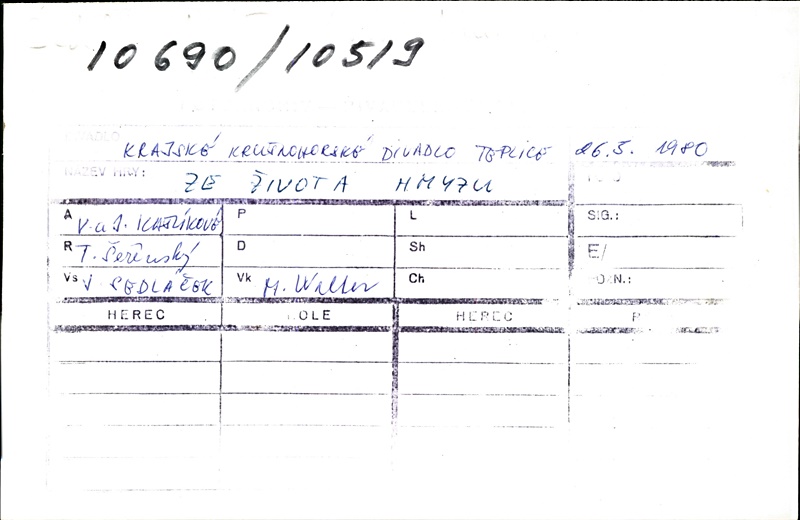 10690/10519
DIVADLO
KRAJSKÉ KRUŠNOHORSKÉ DIVADLO TEPLICE 26.5. 1980
NÁZEV HRY:
ZE ŽIVOTA HMYZU
A V. a J. P L SIG.:
R T. D Sh E/
Vs J. SEDLÁČEK Vk M. Ch POZN.:
HEREC ROLE HEREC R